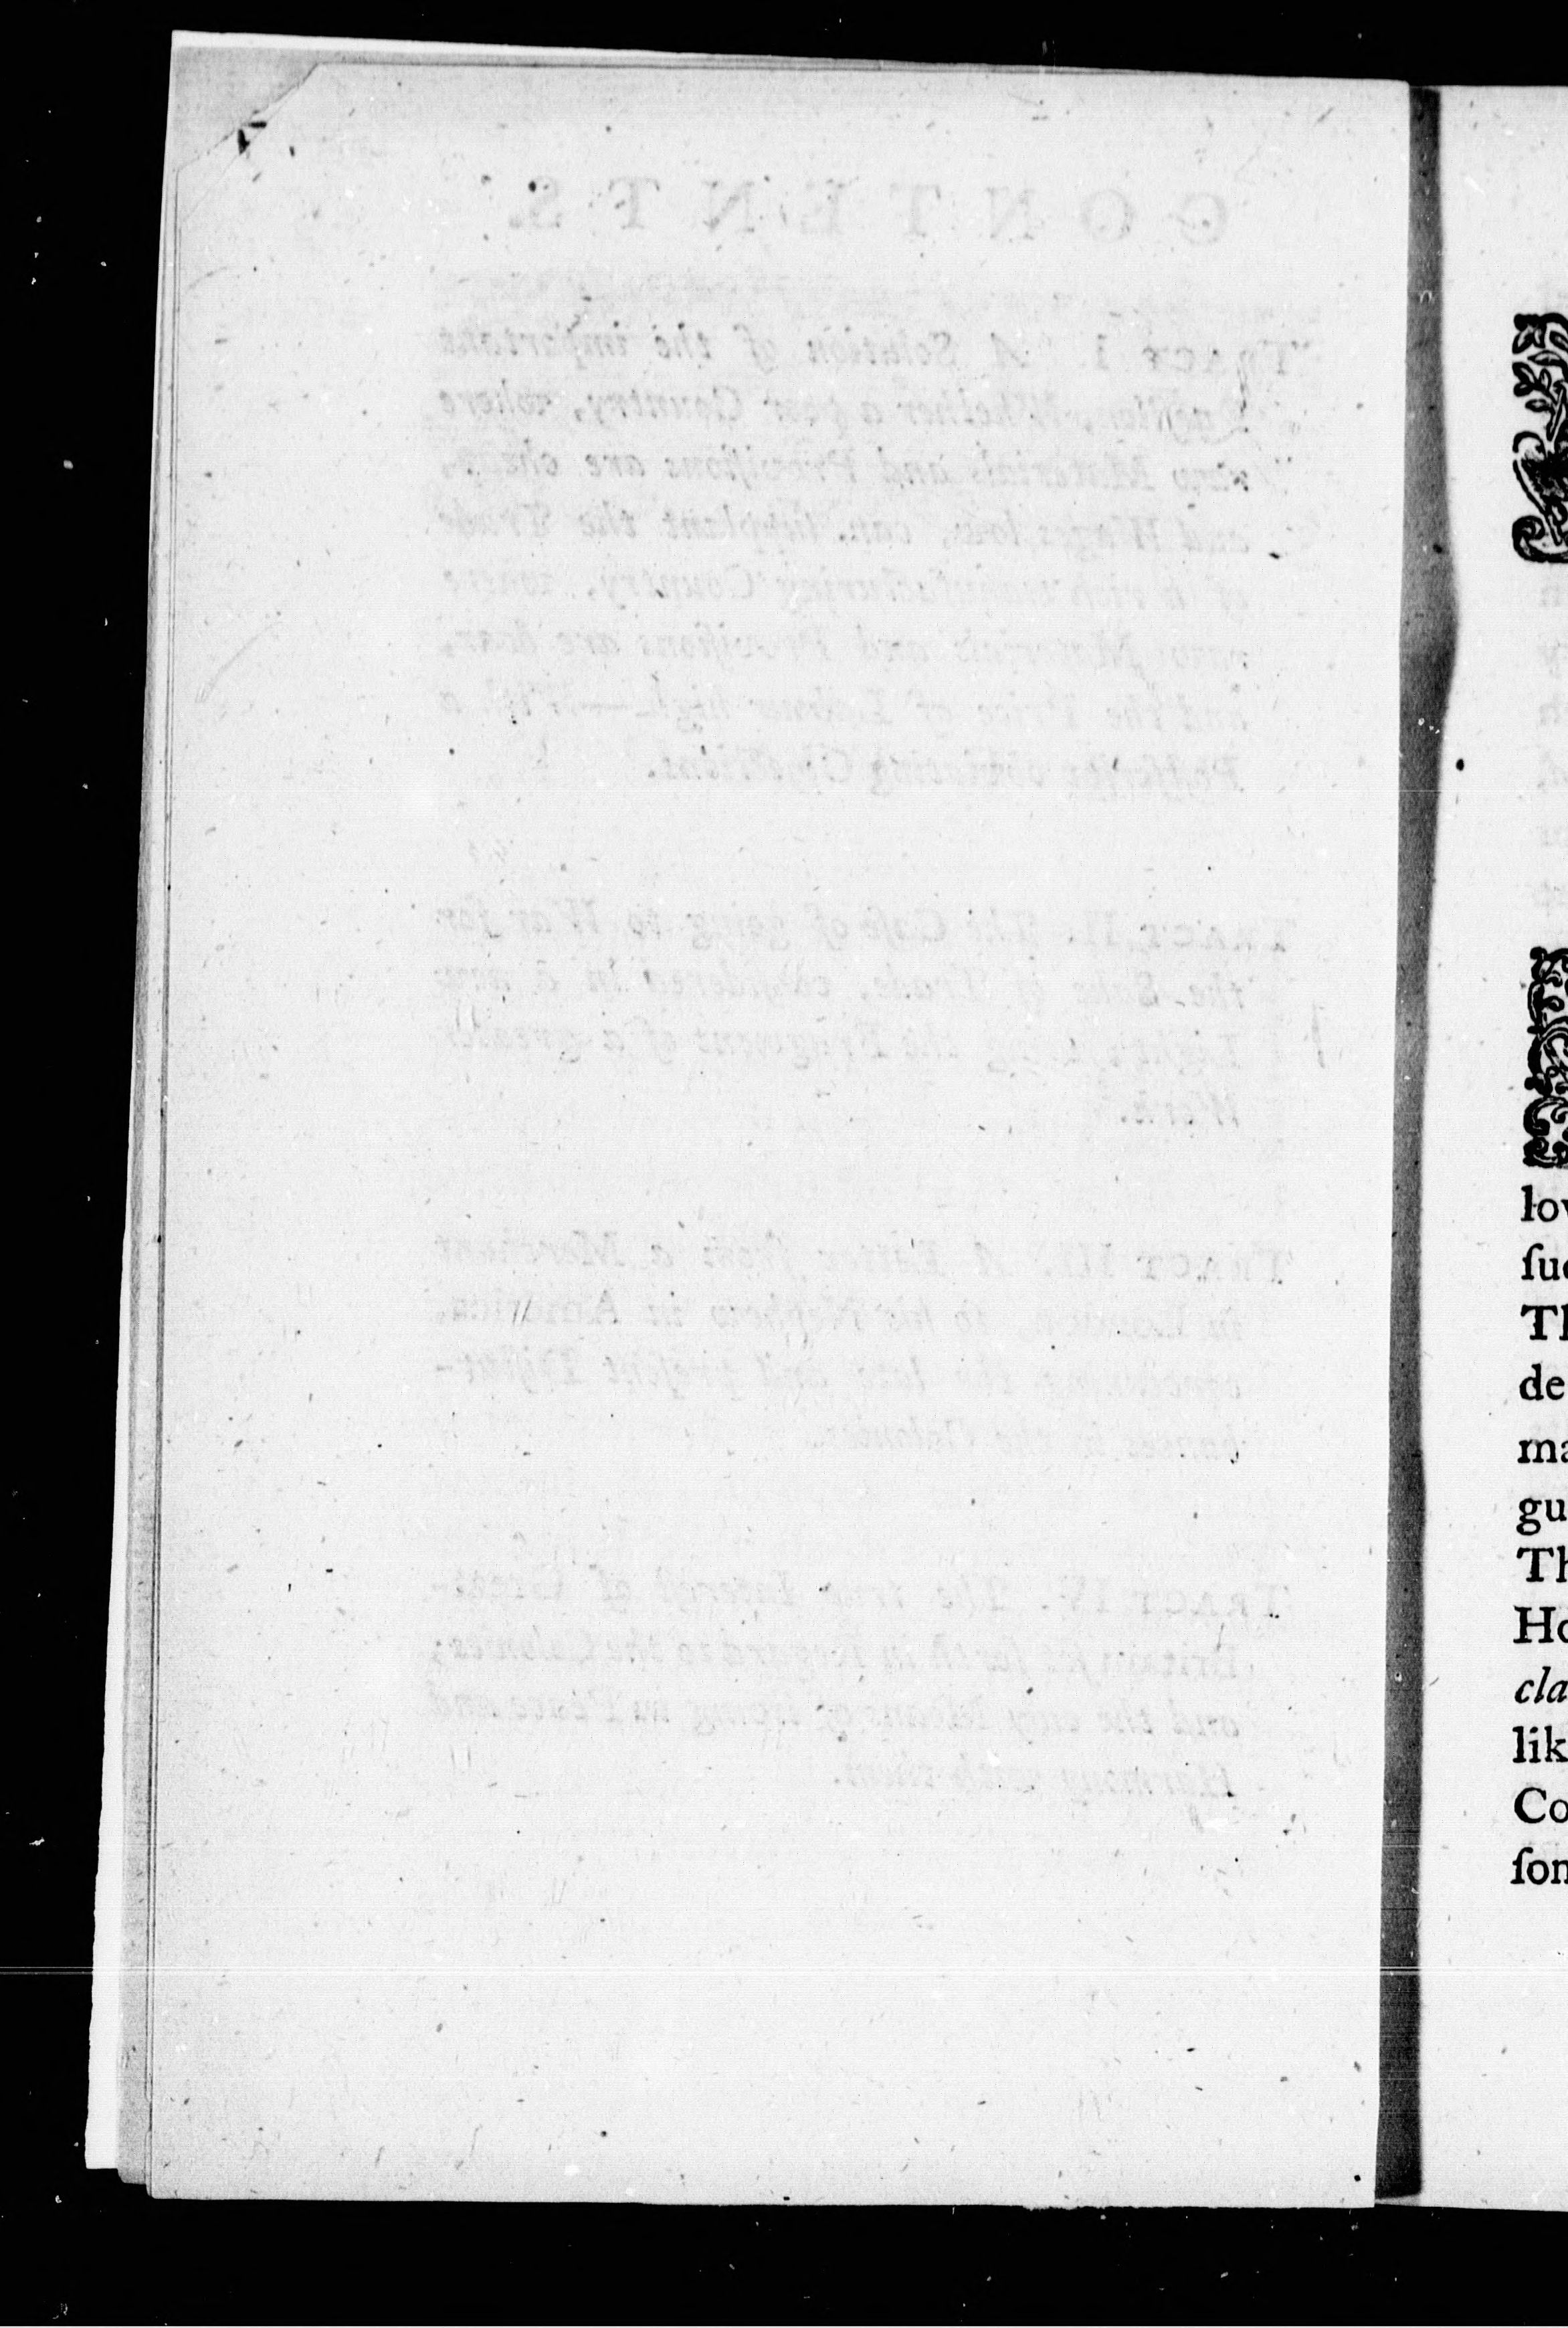 CONTENTS.
TRACT I. A Solution of the important
Question, Whether a poor Country, where
raw Materials and Provisions are cheap,
and Wages low, can supplant the Trade
of a rich manufacturing Country, where
raw Materials and Provisions are dear,
and the Price of Labour high.—With a
Postscript obviating Objections.
TRACT II. The Case of going to War for
the Sake of Trade, considered in a new
Light; being the Fragment of a greater
Work.
TRACT III. A Letter from a Merchant
in London, to his Nephew in America,
concerning the late and present Distur-
bances in the Colonies.
TRACT IV. The true Interest of Great-
Britain set forth in Regard to the Colonies;
and the only Means of living in Peace and
Harmony with them.
lov
ſuc
Th
de
ma
gu
Th
Ho
cla
lik
Co
ſom